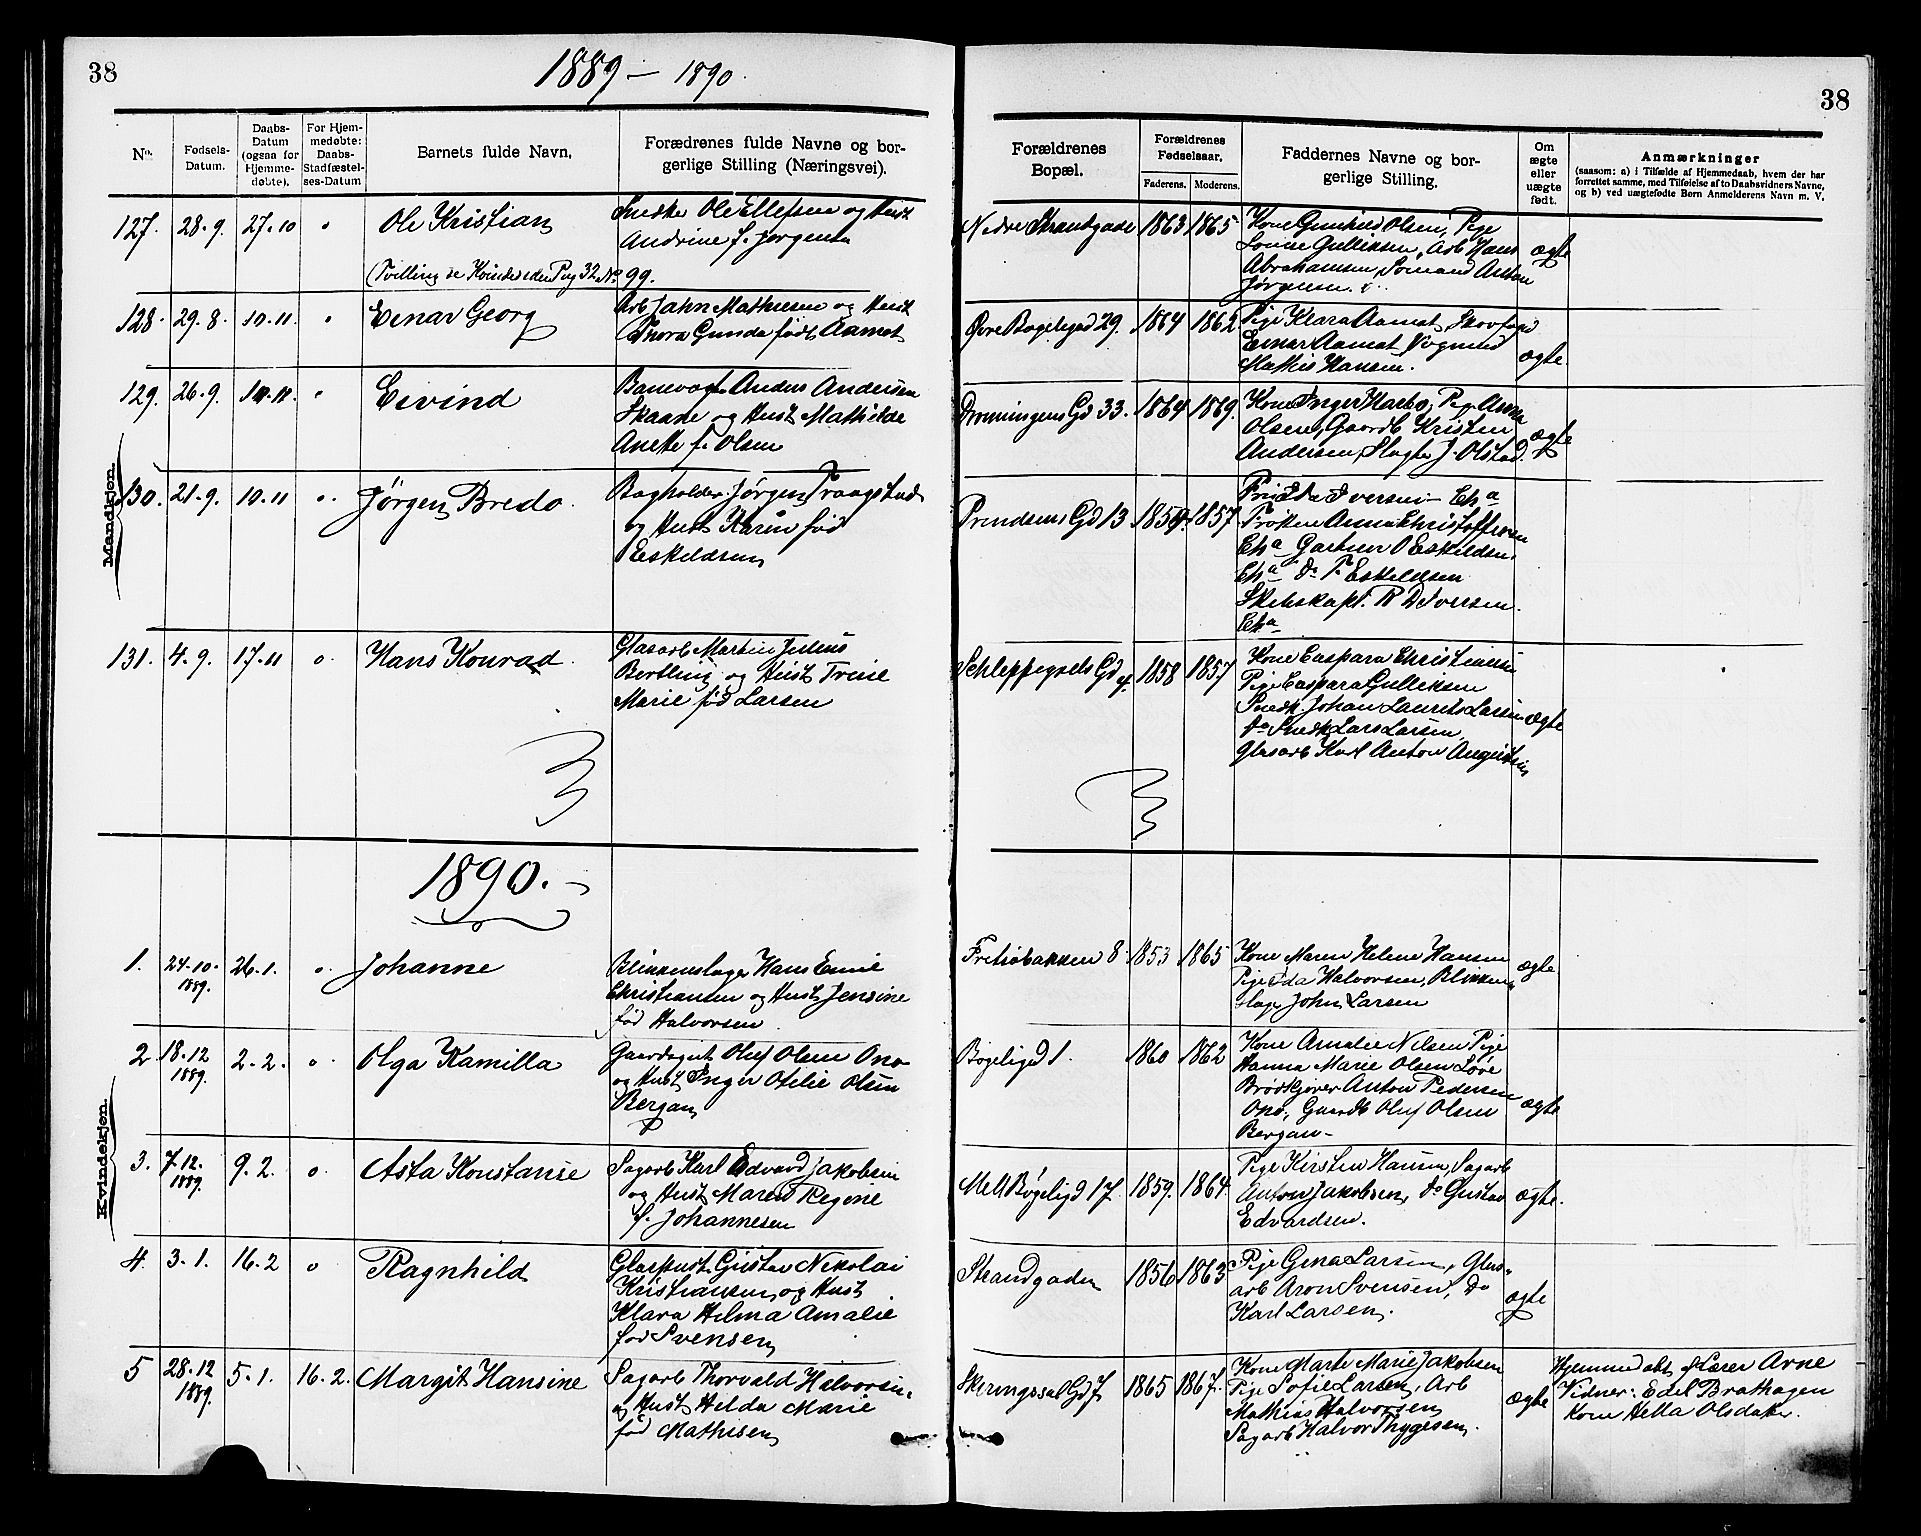 38
1889 – 1890.
38
No.
Fødsels-Datum.
Daabs-Datum (ogsaa for Hjemmedøbte).
For Hjemmedøbte: Daabs-Stadfæstelses-Datum
Barnets fulde Navn.
Forædrenes fulde Navne og borgerlige Stilling (Næringsvei).
Forældrenes Bopæl.
Forældrenes Fødselsaar.
Faderens. Moderens.
Faddernes Navne og borgerlige Stilling.
Om ægte eller uægte født.
Anmærkninger
(saasom: a) i Tilfælde af Hjemmedaab, hvem der har
forrettet samme, med Tilføielse af to Daabsvidners Navne,
og b) ved uægtefødte Børn Anmelderens Navn m. V.
Mandkjøn.
127. 28.9. 27.10 " Ole Kristian
(Tvilling se Kvindesiden Pag 32 No 99.
Snedker Ole Ellefsen og Hust
Andrine f. Jørgensen
Nedre Strandgade 1863 1865
Kone Gunhild Olsen, Pige
Lovise Gulliksen, Arb Hans
Abrahamsen, Sømand Anton
Jørgensen.
ægte
128. 29.8. 10.11. " Einar Georg
Arb Jahn Mathisen og Hust
Thora Gunda født Aamot
Øvre Bøgeligd 29. 1864 1862
Pige Klara Aamot, Skovfogd
Einar Aamot, Vognmd
Mathis Hansen.
ægte
129. 26.9. 10.11. " Eivind
Banevogt Anders Andersen
Skaane og Hust Mathilde
Anette f. Olsen
Dronningens Gd 33. 1864 1869.
Kone Inger Harbo, Pige Anna
Olsen, Gaardb Kristen
Andersen, Slagter J. Olstad.
ægte
130. 21.9. 10.11 " Jørgen Bredo
Bogholder Jørgen Traagstad
og Hust Karin fød
Eskildsen
Prindsens Gd 13 1859. 1857
Fru Ida Iversen Cha
Frøken Anna Christoffersen
Cha Gartner O Eskildsen,
Cha Do F. Eskildsen
Skibskapt. R D Iversen.
Cha
131. 4.9. 17.11 " Hans Konrad
Glasarb Martin Julius
Bertling og Hust Trine
Marie fød Larsen
Schleppegrels Gd 4. 1858 1857
Kone Caspara Christiansen
Pige Caspara Gulliksen
Snedk. Johan Laurits Larsen
Do Snedk Lars Larsen,
Glasarb Karl Anton Augustsen
ægte
1890. –
Kvindekjøn.
1. 24.10.1889. 26.1. " Johanne
Blikkenslager Hans Emil
Christiansen og Hust Jensine
fød Halvorsen.
Fritsøbakken 8 1853 1865
Kone Maren Helene Hansen
Pige Ida Halvorsen, Blikken
slag John Larsen
ægte
2 18.12 1889. 2.2. " Olga Kamilla
Gaardsgut Oluf Olsen Ono
og Hust Inger Otilie Olsen
Bergan
Bøgeligd 1. 1860 1862
Kone Amalie Nilsen Pige
Hanna Marie Olsen Løve
Brødkjører Anton Pedersen
Ono, Gaardb Oluf Olsen
Bergan –
ægte
3. 7.12. 1889. 9.2. " Asta Konstanse
Sagarb Karl Edvard Jakobsen
og Hust Maren Regine
f. Johannesen
Mell Bøgeligd 17. 1859. 1864.
Pige Kirsten Hansen, Sagarb
Anton Jakobsen, Do Gustav
Edvardsen.
ægte.
4. 3.1. 16.2 " Ragnhild
Glaspust Gustav Nikolai
Kristiansen og Hust
Klara Hilma Amalie
fød Svensen
Strandgaden 1856 1863
Pige Gina Larsen, Glas-
arb Aron Svensen, Do
Karl Larsen.
ægte
5 28.12 1889. 5.1. 16.2. Margit Hansine
Sagarb Thorvald Halvorsen
og Hust Helda Marie
fød Mathisen
Skiringssal Gd 7. 1865 1867.
Kone Marte Marie Jakobsen
Pige Sofie Larsen, Arb
Mathias Halvorsen
Sagarb Halvor Thygesen
ægte
Hjemmedøbt af Lærer Arne
Vidner: Edel Brathagen
Kone Hella Olsdatter.